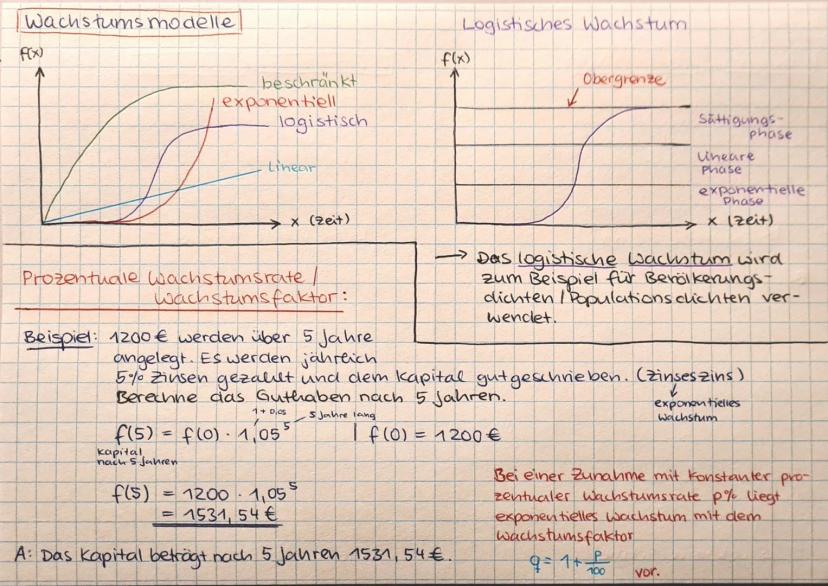 Wachstumsmodelle
f(x)
beschränkt
exponentiell
logistisch
Linear
x (Zeit)
Logistisches Wachstum
f(x)
Obergrenze
Sättigungs-
phase
Lineare
Phase
exponentielle
Phase
x (Zeit)
→ Das logistische Wachstum wird
zum Beispiel für Bevölkerungs-
dichten / Populationsdichten ver-
wendet.
Prozentuale Wachstumsrate /
Wachstumsfaktor:
Beispiel: 1200 € werden über 5 Jahre
angelegt. Es werden jährlich
5% Zinsen gezahlt und dem Kapital gutgeschrieben. (Zinseszins)
Berechne das Guthaben nach 5 Jahren.
exponentielles
Wachstum
1+0,05
5 Jahre lang
f(5) = f(0) · 1,05⁵ | f(0) = 1200 €
Kapital
nach 5 Jahren
f(5) = 1200 · 1,05⁵
= 1531,54 €
A: Das Kapital beträgt nach 5 Jahren 1531,54 €.
Bei einer Zunahme mit konstanter pro-
zentualer Wachstumsrate p% liegt
exponentielles Wachstum mit dem
Wachstumsfaktor
q = 1 + p/100 vor.